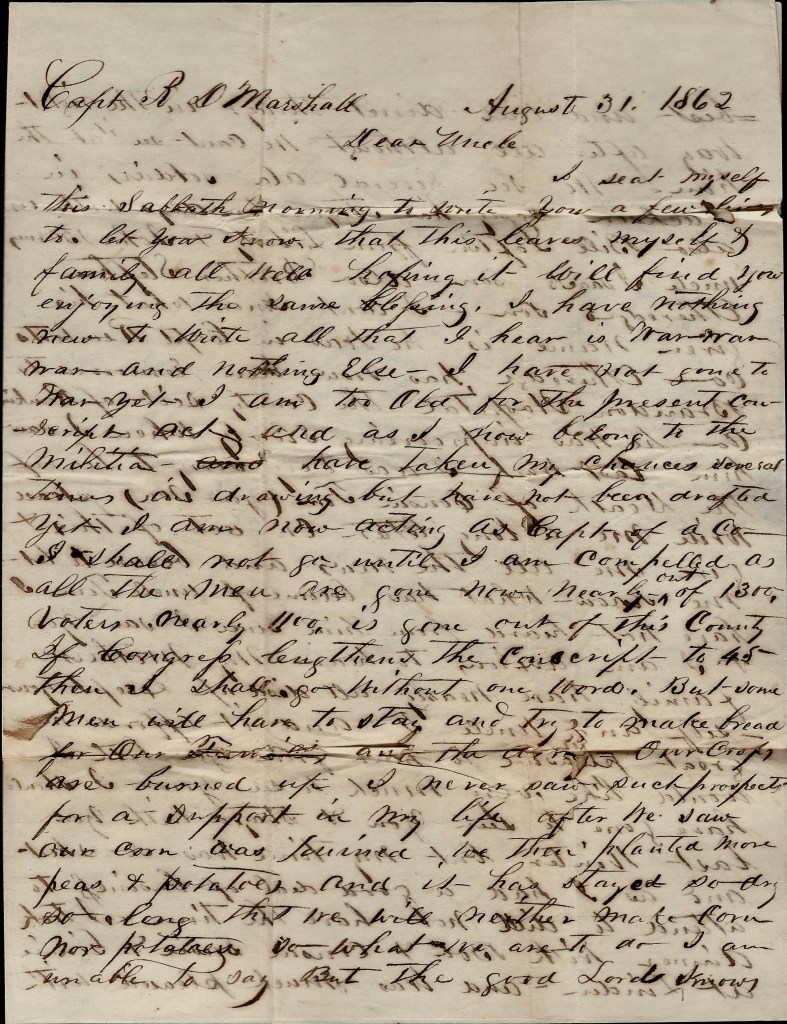 Capt. R D Marshall August 31. 1862
Dear Uncle
I seat myself
this Sabbath morning to write you a few lines
to let you know that this leaves myself &
family all well hoping it will find you
enjoying the same blessing. I have nothing
new to write all that I hear is War war
war and nothing Else - I have not gone to
War yet I am too Old for the present con-
script act, and as I now belong to the
Militia - and have taken my chances several
times at drawing but have not been drafted
yet I am now acting as Capt of a Co
I shall not go until I am Compelled as
all the men are gone now nearly out of 1300,
Voters nearly 1100, is gone out of this County
If Congress lengthens the Conscript to 45
then I shall go without one word. But some
Men will have to stay and try to make bread
for Our Families and the army - Our Crops
are burned up I never saw such prospects
for a support in my life after we saw
our corn was ruined, we then planted more
peas & potatoes and it has stayed so dry
so long that we will neither make Corn
nor potatoes so what we are to do I am
unable to say But the good Lord knows